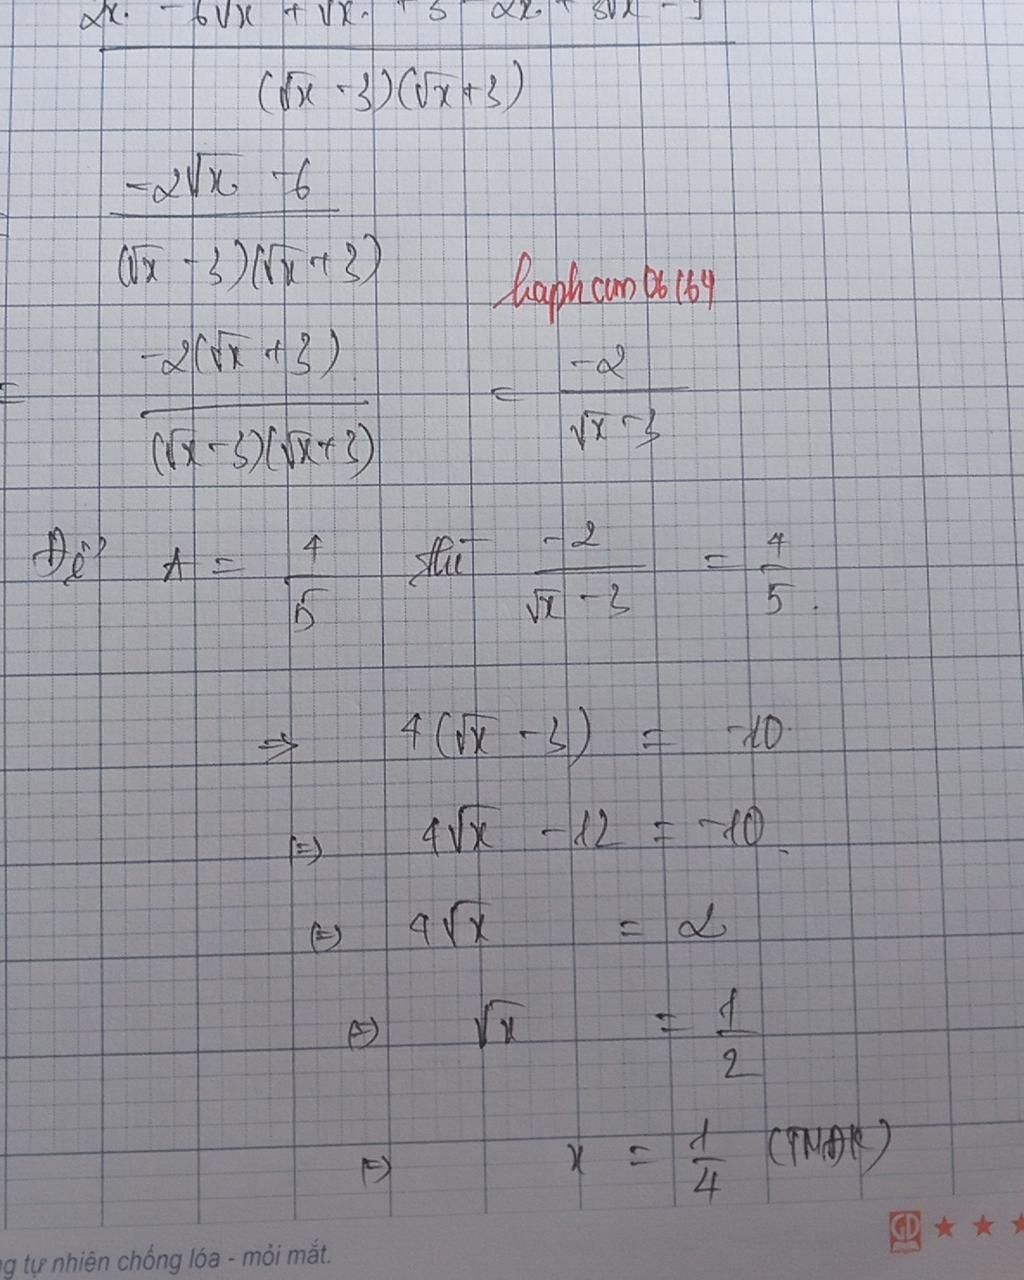 2x - 6√x + √x + 3 - 2x + 3√x - 9
(√x - 3)(√x + 3)
-2√x - 6
(√x - 3)(√x + 3)
haphcam06164
= -2(√x + 3) / (√x - 3)(√x + 3) = -2 / √x - 3
Để A = 4/5 thì -2 / √x - 3 = 4/5.
=> 4(√x - 3) = -10
(=) 4√x - 12 = -10
(=) 4√x = 2
(=) √x = 1/2
(=) x = 1/4 (TMĐK)
GD ★ ★ ★
tự nhiên chống lóa - mỏi mắt.